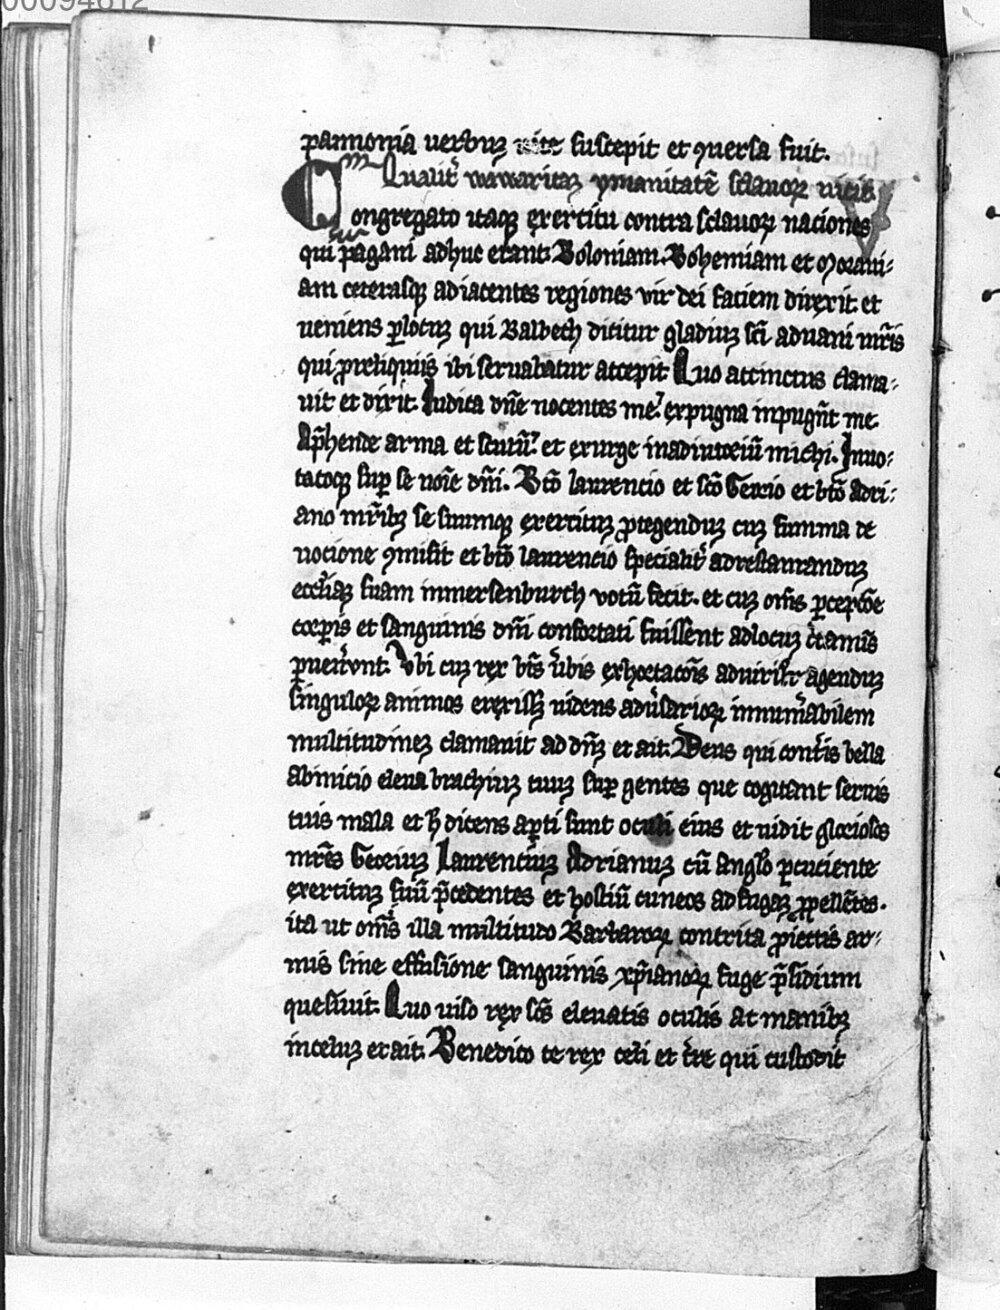 00094612
pannonia uerbuꝫ uite suscepit et ꝯuersa fuit.
Qualit᷑ ymanitatē sclauoꝝ uicit.
Congregato itaqꝫ exercitu contra sclauoꝝ naciones
qui pagani adhuc erant: Boloniam. Bohemiam et Moraui⸗
am ceterasqꝫ adiacentes regiones vir dei faciem direxit et
ueniens ꝑ locuꝫ qui Balbech dicitur gladiuꝫ sc̄i adriani mr̄is
qui pro reliquiis ibi seruabatur accepit Quo accinctus clama⸗
uit et dixit. Iudica dn̄e nocentes me: expugna inpugn̄t me
Ap̄hende arma et scutū: et exurge in adiutoriū michi. Inuo⸗
catoqꝫ suꝑ se noīe dn̄i. Bt̄o laurencio et sc̄o Georio et bt̄o adri⸗
ano mr̄ibꝫ se suumqꝫ exercituꝫ ꝓtegenduꝫ cuꝫ summa de
uocione ꝯmisit et bt̄o laurencio specialit᷑ ad restauranduꝫ
eccl̄iaꝫ suam in mersenburch votū fecit. et cuꝫ om̄s ꝑcepc̄oe
corꝑis et sanguinis dn̄i confortati fuissent ad locuꝫ c̄taminis
ꝑuen̄unt. Vbi cuꝫ rex bt̄s u᷑bis exhortac̄ois ad uirilr̄ agenduꝫ
singuloꝝ animos erexissꝫ uidens adu᷑sarioꝝ innum᷑abilem
multitudineꝫ clamauit ad dn̄ꝫ et ait: Deus qui cont᷑is bella
ab inicio eleua brachiuꝫ tuuꝫ suꝑ gentes que cogitant seruis
tuis mala et h̄ dicens aꝑti sunt oculi eius et uidit gloriosos
mr̄es Georiuꝫ Laurenciuꝫ Adrianuꝫ cū anglo ꝑcuciente
exercituꝫ suū p̄cedentes et hostiū cuneos ad fugaꝫ ꝓpellētes.
ita ut om̄s illa multitudo Barbaroꝝ contrita ꝓiectis ar⸗
mis sine effusione sanguinis xp̄ianoꝝ fuge p̄sidium
quesiuit. Quo uiso rex sc̄s eleuatis oculis ac manibꝫ
in celuꝫ et ait: Benedico te rex celi et t᷑re qui custodit